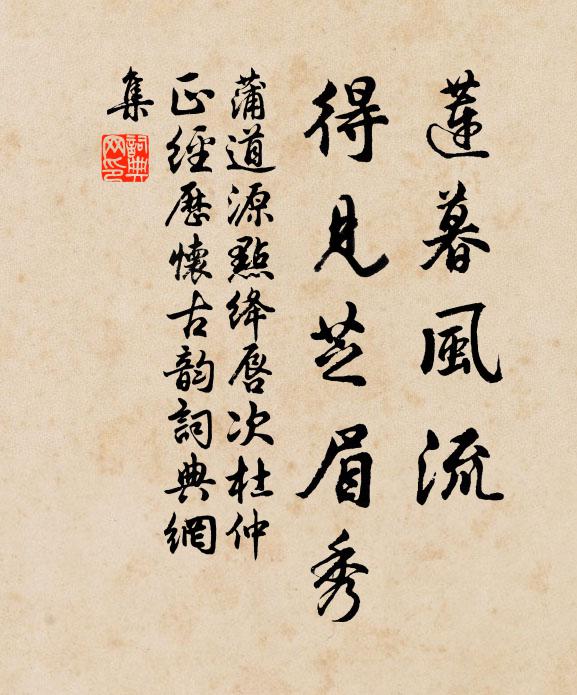 蓮暮風流
得見芝眉秀
蒲道源點絳唇次杜仲
正經歷懷古韵詞典網
集
詞典
网印